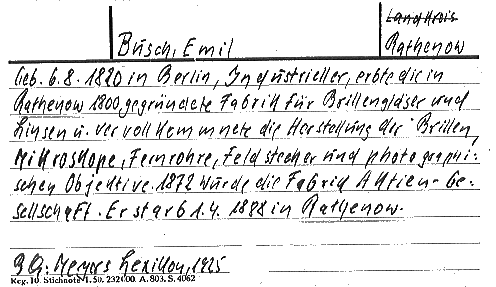 Landkreis
Busch, Emil
Rathenow
Geb. 6.8.1820 in Berlin, Industrieller, erbte die in
Rathenow 1800 gegründete Fabrik für Brillengläser und
Linsen u. vervollkommnete die Herstellung der Brillen,
Mikroskope, Fernrohre, Feldstecher und photographi-
schen Objektive. 1872 wurde die Fabrik Aktien-Ge-
sellschaft. Er starb 1.4.1888 in Rathenow.
BQ: Meyers Lexikon, 1925
Reg. 10. Stichnote 1. 50. 2321 00. A. 803. S. 4062